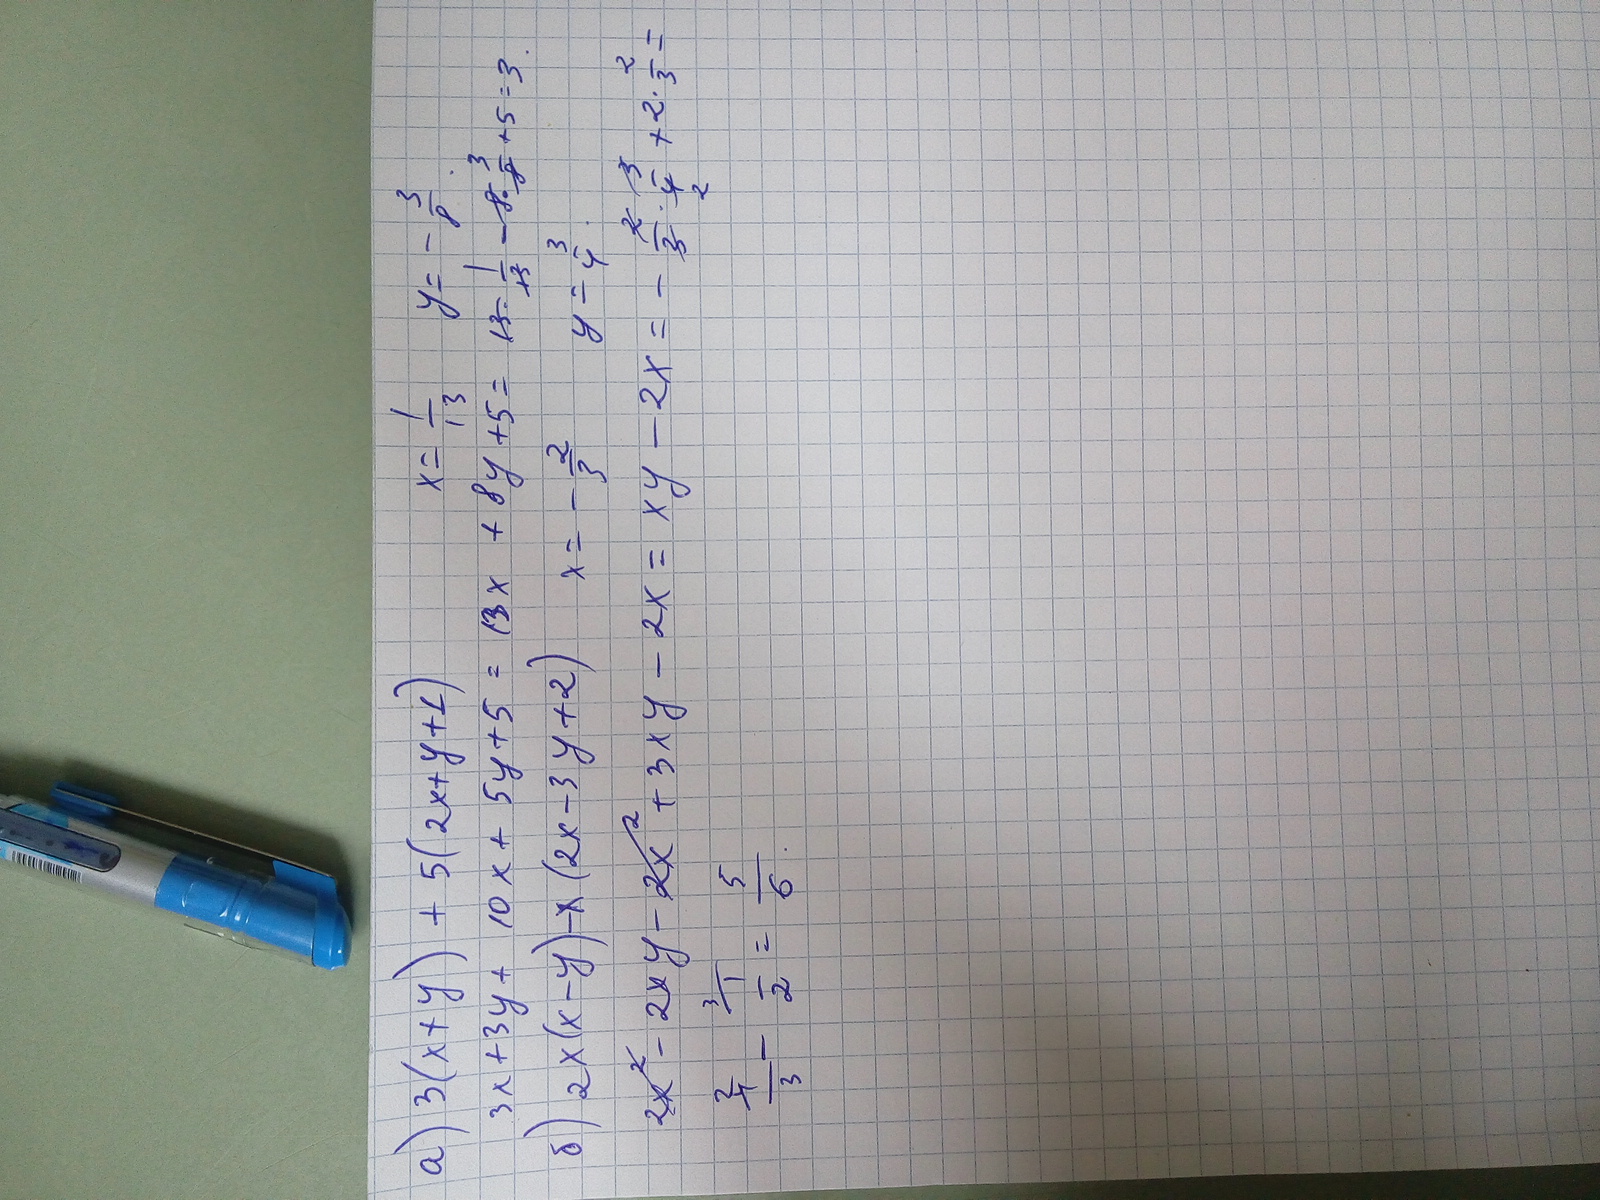 а) 3(x+y) + 5(2x+y+1) x = 1/13 y = -3/8.
3x+3y+ 10x + 5y+5 = 13x + 8y+5 = 13·1/13 - 8·3/8 + 5 = 3.
б) 2x(x-y)-x(2x-3y+2) x = -2/3 y = 3/4.
2x² - 2xy - 2x² + 3xy - 2x = xy - 2x = - 2/3 · 3/4 + 2 · 2/3 =
4/3 - 1/2 = 5/6.